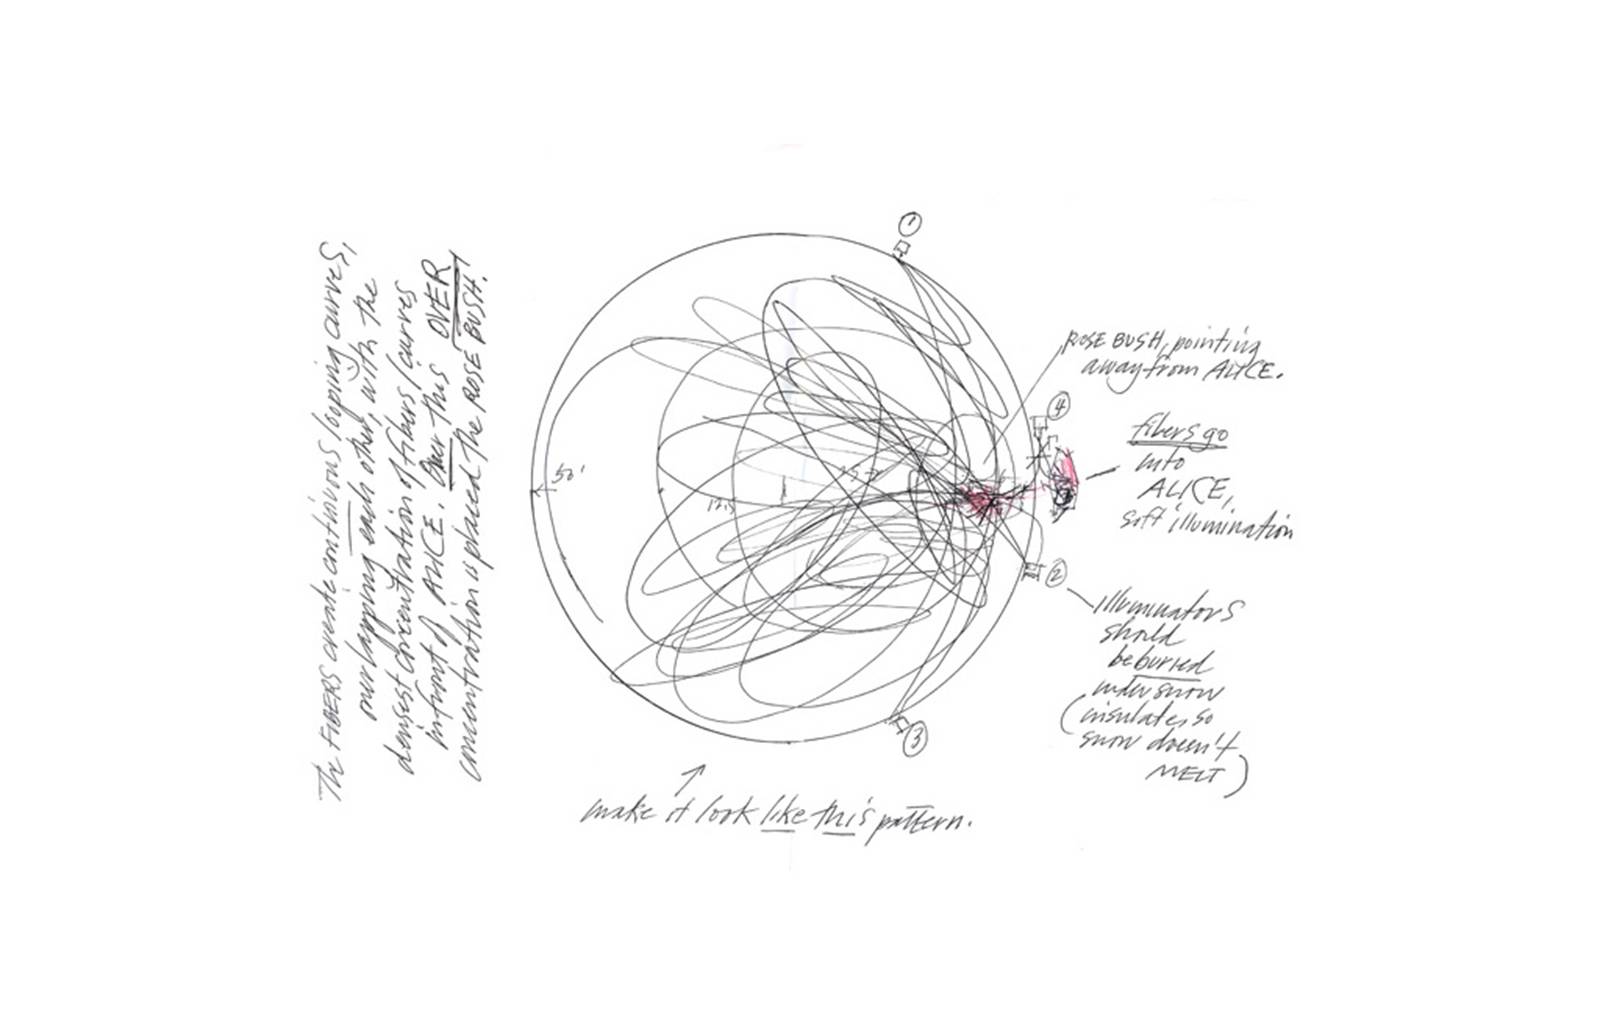 The FIBERS create continuous looping curves,
overlapping each other, with the
densest concentration of fibers/curves
in front of ALICE. Over this OVER
concentration is placed the ROSE BUSH!
1
ROSE BUSH, pointing
away from ALICE.
4
fibers go
into
ALICE,
soft illumination
50'
12.5
2
illuminators
should
be buried
under snow
(insulate, so
snow doesn't
MELT)
3
make it look like this pattern.